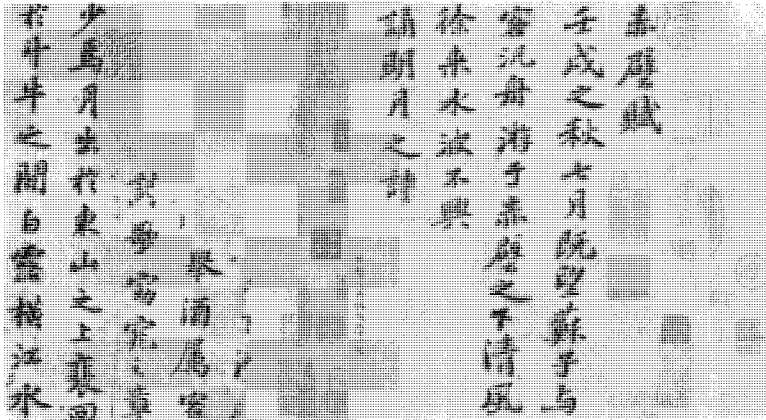 赤壁賦
壬戌之秋七月既望蘇子与
客汎舟游于赤壁之下清風
徐来水波不興
誦明月之詩
舉酒屬客
窈窕之章
少焉月出於東山之上裵回
於斗牛之間白露橫江水